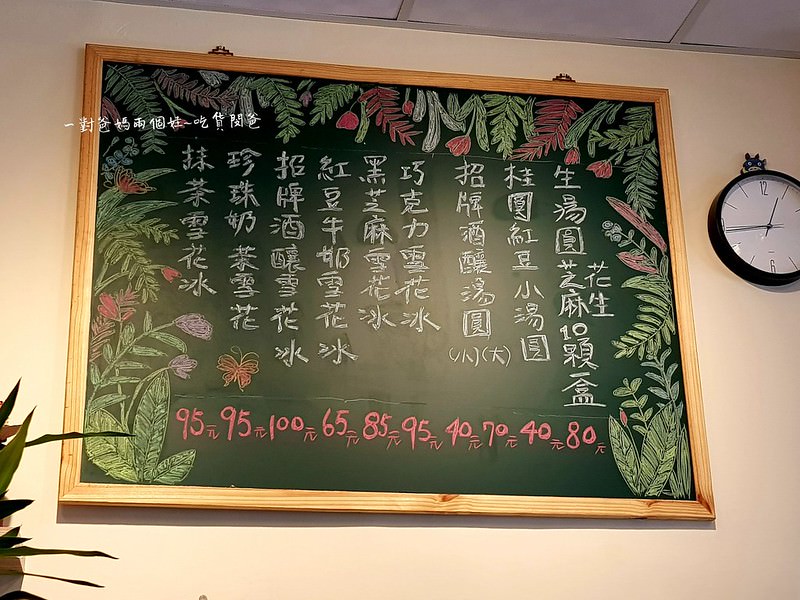 一對爸媽兩個娃~吃貨閔爸
生湯圓 花生 芝麻 10顆一盒
桂圓紅豆小湯圓
招牌酒釀湯圓 (小)(大)
巧克力雪花冰
黑芝麻雪花冰
紅豆牛奶雪花冰
招牌酒釀雪花冰
珍珠奶茶雪花
抹茶雪花冰
95元 95元 100元 65元 85元 95元 40元 70元 40元 80元